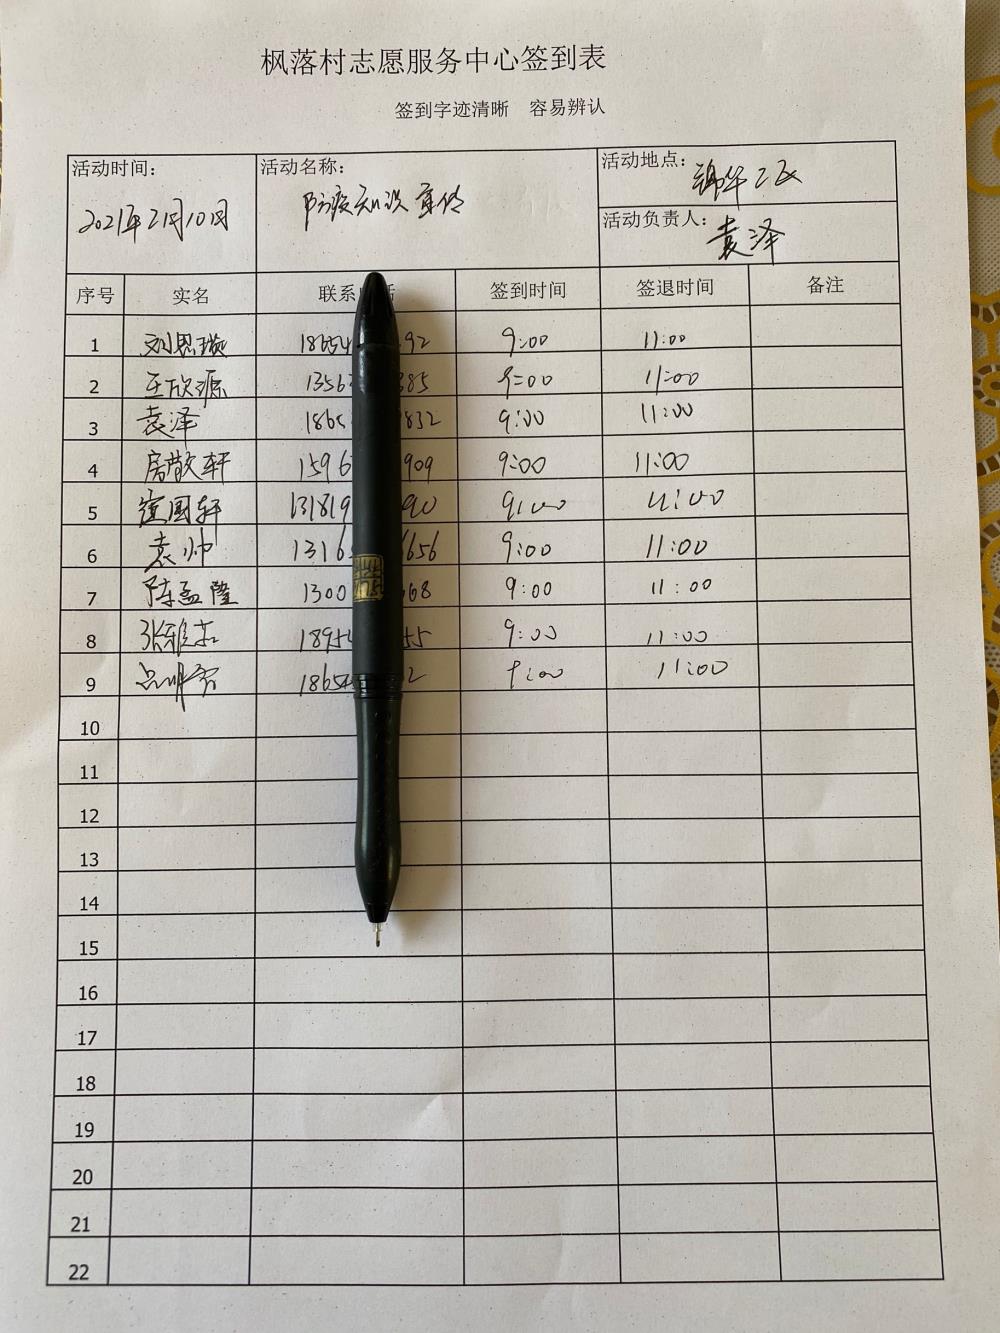 枫落村志愿服务中心签到表
签到字迹清晰 容易辨认
活动时间: 活动名称: 活动地点:
2021年2月10日 防疫知识宣传
活动负责人: 袁泽
序号 实名 联系 话 签到时间 签退时间 备注
1 刘思璇 18654 92 9:00 11:00
2 王欣源 1356 385 9:00 11:00
3 袁泽 1865 832 9:00 11:00
4 房散轩 1596 909 9:00 11:00
5 崔国轩 131819 90 9:00 11:00
6 袁帅 1316 656 9:00 11:00
7 陈孟隆 1300 68 9:00 11:00
8 张雅茹 18954 55 9:00 11:00
9 18654 2 9:00 11:00
10
11
12
13
14
15
16
17
18
19
20
21
22